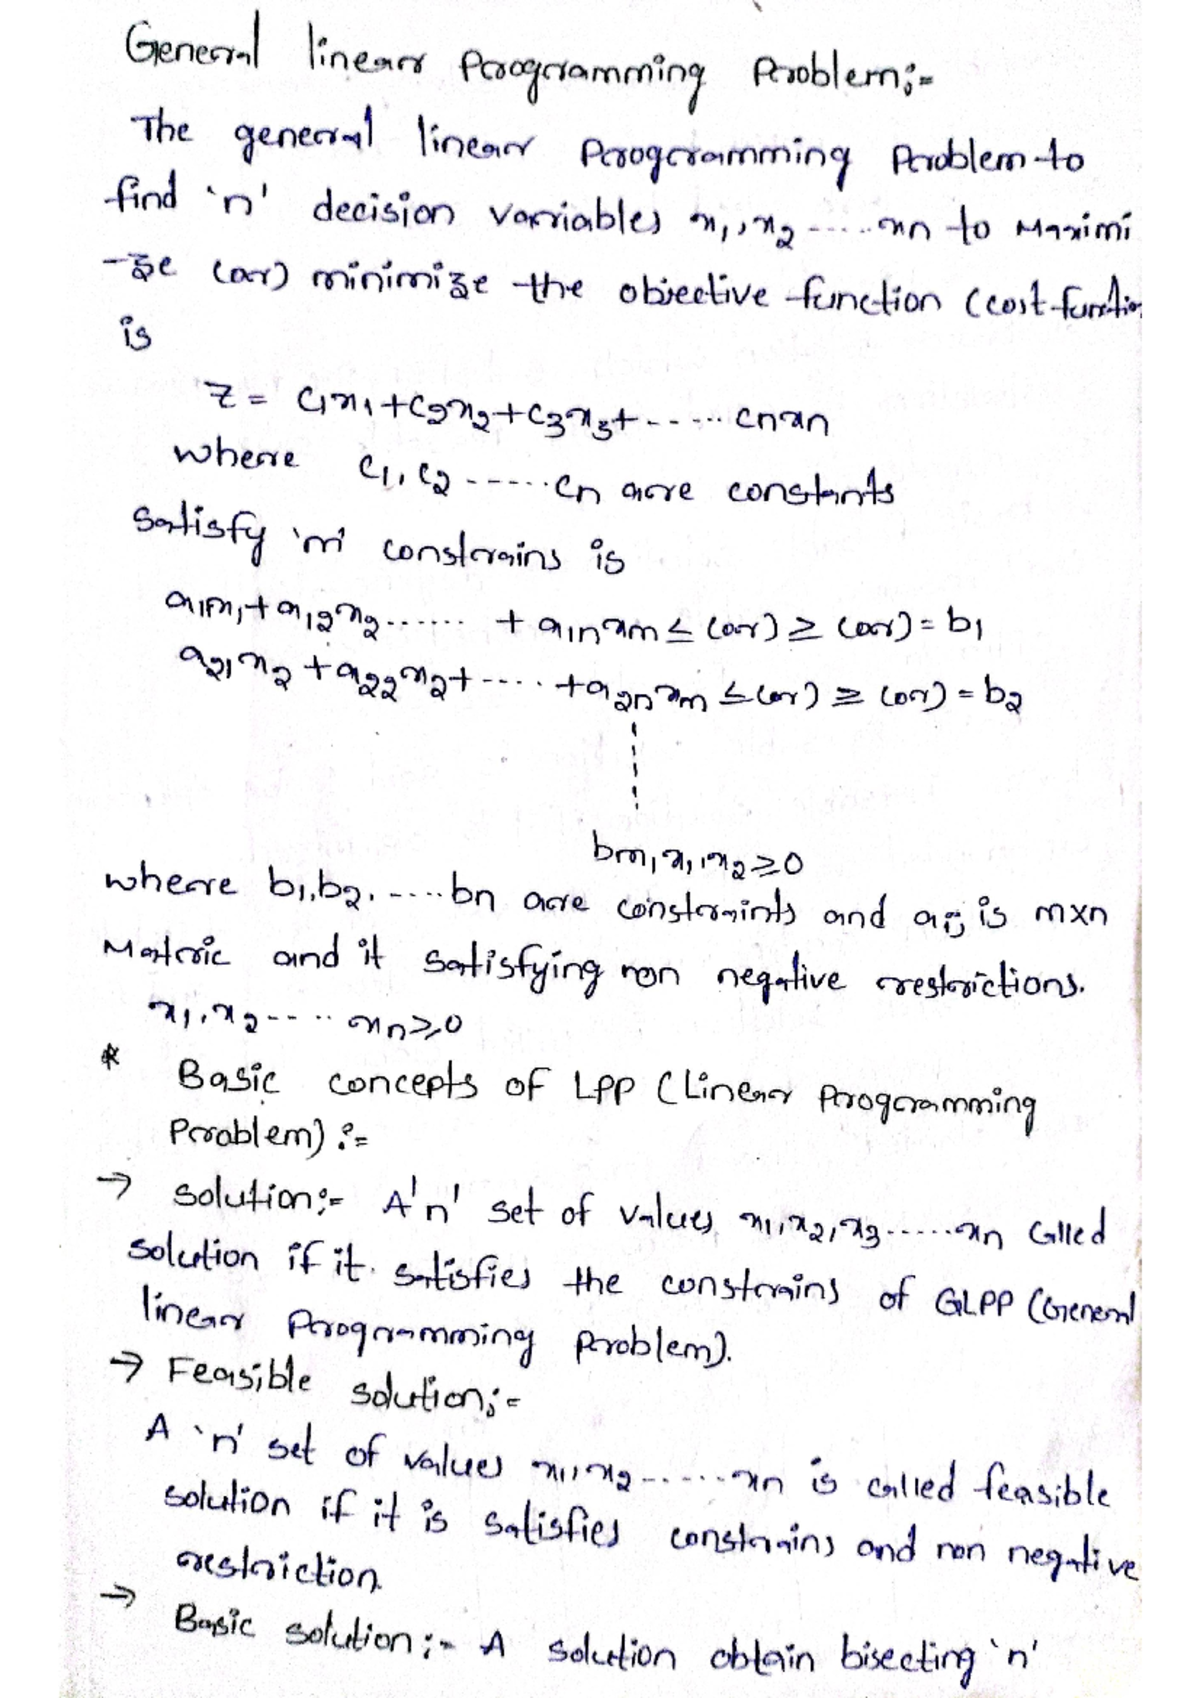 General linear Programming Problem:-
The general linear Programming Problem to
find 'n' decision variables x₁, x₂ ..... xn to Maximi
-ze (or) minimize the objective function (cost function
is
Z = C₁x₁+C₂x₂+C₃x₃+ ..... cnxn
where c₁, c₂ ..... cn are constants
satisfy 'm' constrains is
a₁₁x₁+a₁₂x₂ ...... + a₁nxm ≤ (or) ≥ (or) = b₁
a₂₁x₂ + a₂₂x₂+ ..... +a₂nxm ≤ (or) ≥ (or) = b₂
bm, x₁, x₂ ≥ 0
where b₁, b₂, ..... bn are constraints and aij is mxn
Matric and it satisfying non negative restrictions.
x₁, x₂ ..... xn ≥ 0
* Basic concepts of LPP (Linear Programming
Problem) :=
→ solution:- A 'n' set of values x₁, x₂, x₃ ...... xn Called
solution if it. satisfies the constrains of GLPP (General
linear Programming Problem).
→ Feasible solution:-
A 'n' set of values x₁, x₂ ...... xn is called feasible
solution if it is satisfies constrains and non negative
restriction.
→ Basic solution:- A solution obtain bisecting 'n'